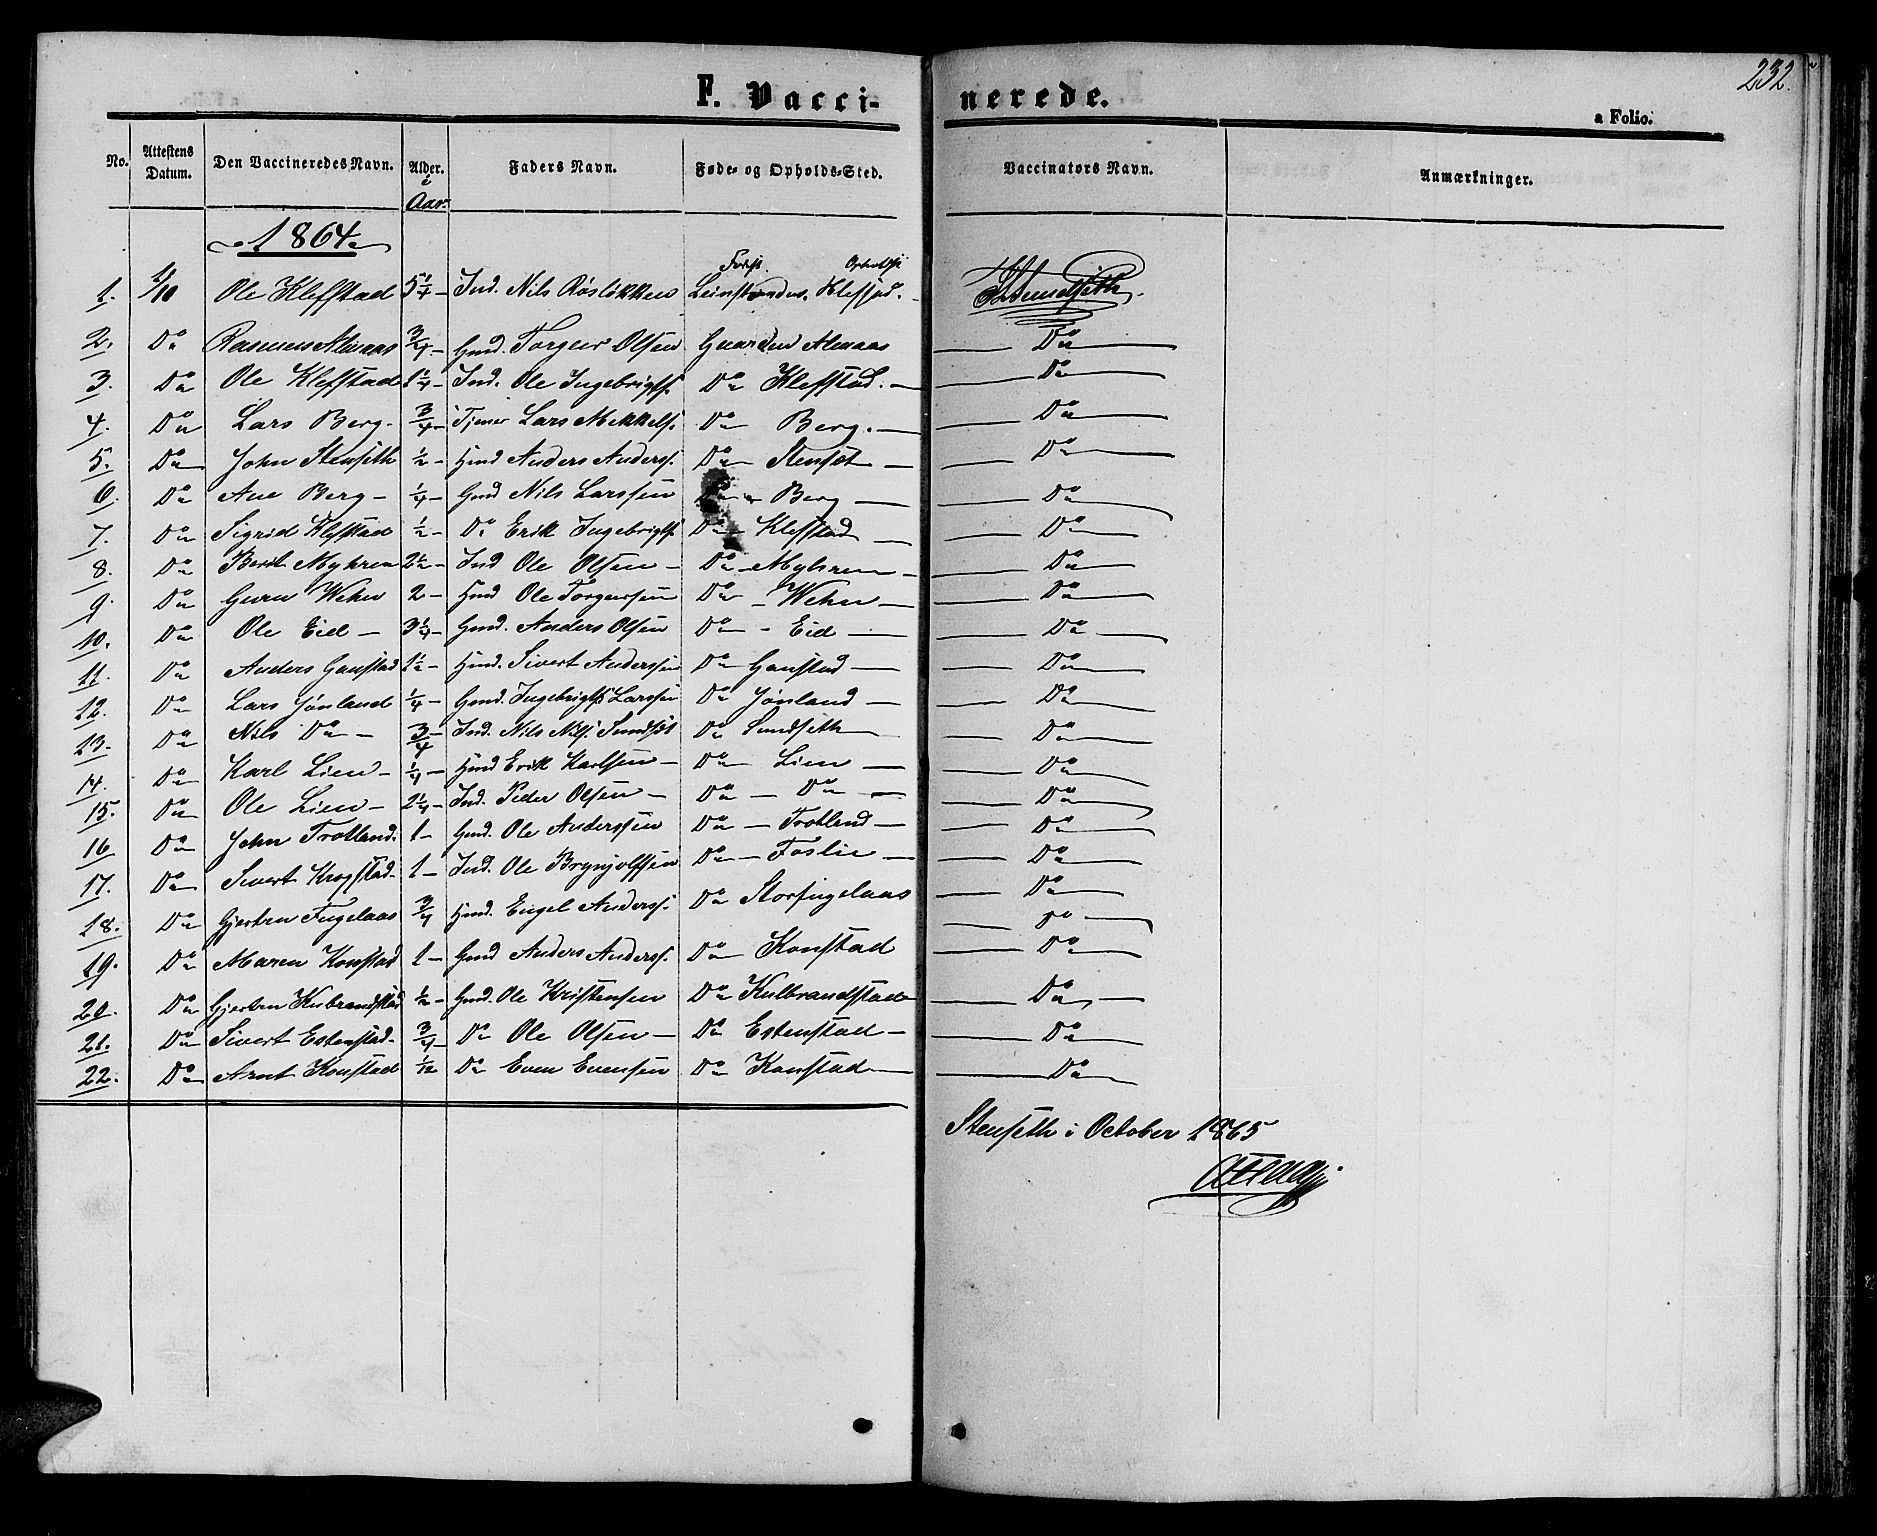 232.
F. Vacci- nerede.
a Folio.
No. Attestens Datum. Den Vaccineredes Navn. Alder. i Aar. Faders Navn. Føde- og Opholds-Sted. Vaccinators Navn. Anmærkninger.
1864
Fødst. Opholdst
1. 1/10 Ole Klefstad 5 1/4 - Ind. Nils Røslökken Leinstranden. Klefstad.
2. Do Rasmus Almaas 3/4 - Gmd. Torger Olsen Guarden Almaas Do
3. Do Ole Klefstad 1 1/4 - Ind. Ole Ingebrigts. Do Klefstad. - Do
4. Do Lars Berg - 3/4 - Tjener Lars Mekkels. Do Berg. - Do
5. Do John Stenseth 1/2 - Hmd Anders Anders. Do Stenset - Do
6. Do Ane Berg - 1/4 - Gmd Nils Larssen Do Berg - Do
7. Do Sigrid Klefstad 1/2 - Do Erik Ingebrigts. Do Klefstad - Do
8. Do Berit Myhren 2 1/2 - Ind Ole Olsen - Do - Myhren - Do
9. Do Guru Wehn 2 - Hmd Ole Torgersen Do - Wehn - Do
10. Do Ole Eid - 3 1/4 - Gmd. Anders Olsen Do - Eid - Do
11. Do Anders Gaustad 1 1/2 - Hmd. Sivert Anderssen Do Gaustad - Do
12. Do Lars Jønland 1/4 - Gmd. Ingebrigts Larssen Do Jønland - Do
13. Do Nils Do - 3/4 - Ind. Nils Nils. Sundset Do Sundseth Do
14. Do Karl Lien - 1/4 - Hmd Erik Karlsen - Do Lien - Do
15. Do Ole Lien - 2 1/4 - Ind. Peder Olsen - Do - Do - Do
16 Do John Trotland. 1 - Gmd. Ole Anderssen Do - Trotland - Do
17. Do Sivert Krogstad - 1 - Ind. Ole Brynjolfsen Do - Foslie - Do
18. Do Gjertru Fugelaas 3/4 Hmd. Engel Anders. Do Storfugelaas Do
Do
19. Do Maren Konstad 1 - Gmd Anders Anders. Do Konstad Do
20. Do Gjertru Kulbrandstad 1/2 - Gmd. Ole Kristensen Do Kulbrandstad Do
21. Do Sivert Estenstad - 3/4 - Do Ole Olsen - Do Estenstad - Do
22. Do Arnt Konstad 1/12 - Do Even Evensen Do Konstad - Do
Stenseth i October 1865